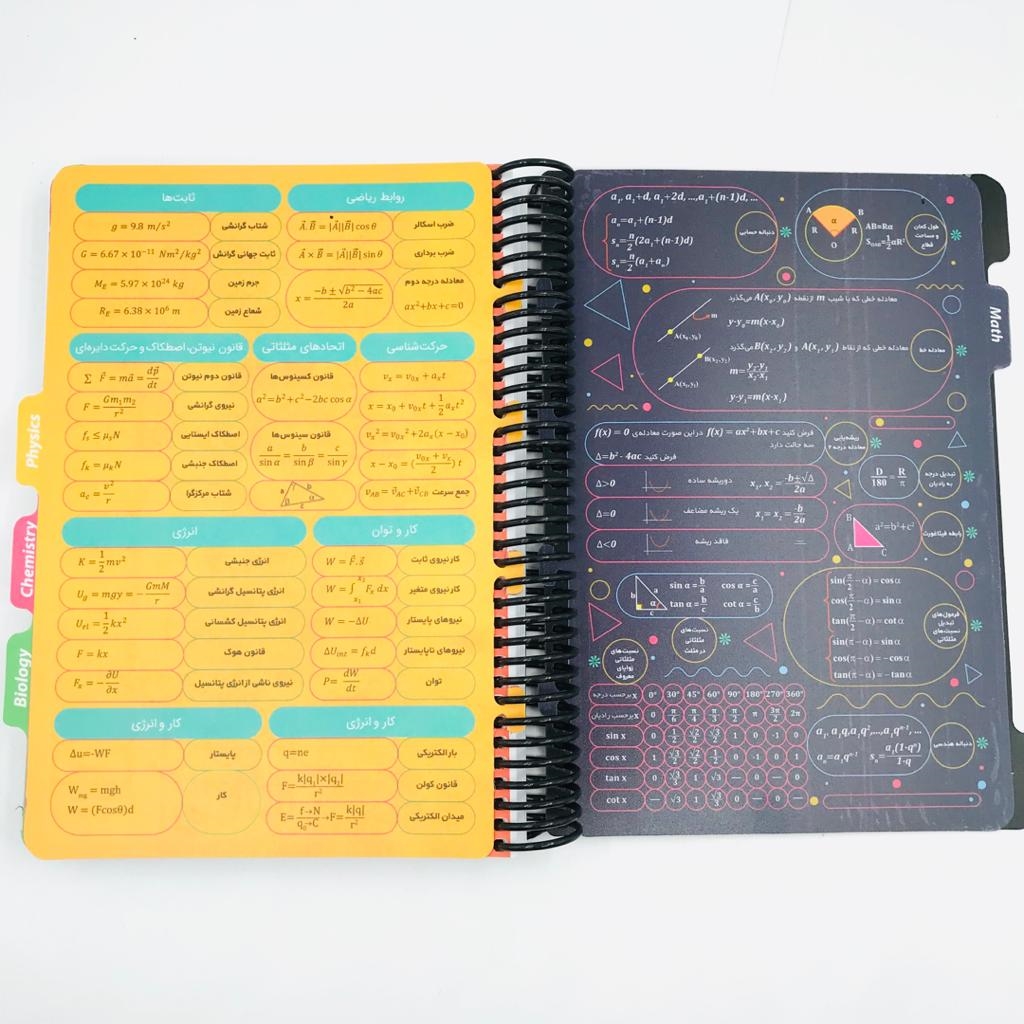 روابط ریاضی
ضرب اسکالر A⃗.B⃗ = |A⃗||B⃗| cos θ
ضرب برداری A⃗ × B⃗ = |A⃗||B⃗| sin θ
معادله درجه دوم
ax²+bx+c=0
x = (-b ± √(b² − 4ac))/2a
ثابت‌ها
شتاب گرانشی g = 9.8 m/s²
ثابت جهانی گرانش G = 6.67 × 10⁻¹¹ Nm²/kg²
جرم زمین M_E = 5.97 × 10²⁴ kg
شعاع زمین R_E = 6.38 × 10⁶ m
حرکت‌شناسی
vₓ = v₀ₓ + aₓt
x = x₀ + v₀ₓt + 1/2 aₓt²
vₓ² = v₀ₓ² + 2aₓ(x − x₀)
x − x₀ = ((v₀ₓ + vₓ)/2) t
جمع سرعت v⃗_AB = v⃗_AC + v⃗_CB
اتحادهای مثلثاتی
قانون کسینوس‌ها
a²=b²+c²−2bc cos α
قانون سینوس‌ها
a/sin α = b/sin β = c/sin γ
قانون نیوتن، اصطکاک و حرکت دایره‌ای
قانون دوم نیوتن ∑ F⃗ = ma⃗ = dp⃗/dt
نیروی گرانشی F = Gm₁m₂/r²
اصطکاک ایستایی f_s ≤ μ_sN
اصطکاک جنبشی f_k = μ_kN
شتاب مرکزگرا a_c = v²/r
کار و توان
کار نیروی ثابت W = F⃗.s⃗
کار نیروی متغیر W = ∫ₓ₁ˣ² Fₓ dx
نیروهای پایستار W = −ΔU
نیروهای ناپایستار ΔU_int = f_kd
توان P= dW/dt
انرژی
انرژی جنبشی K = 1/2 mv²
انرژی پتانسیل گرانشی U_g = mgy = −GmM/r
انرژی پتانسیل کشسانی U_el = 1/2 kx²
قانون هوک F = kx
نیروی ناشی از انرژی پتانسیل Fₓ = −∂U/∂x
کار و انرژی
بار الکتریکی q=ne
قانون کولن F= k|q₁|×|q₂|/r²
میدان الکتریکی E= f→N/q₀→C →F= k|q|/r²
کار و انرژی
پایستار Δu=-WF
کار
W_mg = mgh
W = (Fcosθ)d
Physics
Chemistry
Biology
Math
a₁, a₁+d, a₁+2d, ...,a₁+(n-1)d, ...
دنباله حسابی
aₙ=a₁+(n-1)d
sₙ=n/2(2a₁+(n-1)d)
sₙ=n/2(a₁+aₙ)
طول کمان و مساحت قطاع
A B
α
R R
O
AB=Rα
S_OAB=1/2αR²
معادله خط
معادله خطی که با شیب m از نقطه A(x₀, y₀) می‌گذرد
m
A(x₀,y₀)
y-y₀=m(x-x₀)
معادله خطی که از نقاط A(x₁, y₁) و B(x₂, y₂) می‌گذرد
B(x₂,y₂)
A(x₁,y₁)
m= y₂-y₁/x₂-x₁
y-y₁=m(x-x₁)
ریشه‌یابی معادله درجه ۲
فرض کنید f(x) = ax²+bx+c در این صورت معادله‌ی f(x) = 0
سه حالت دارد
فرض کنید Δ=b² - 4ac
Δ>0 دو ریشه ساده x₁, x₂ = -b±√Δ/2a
Δ=0 یک ریشه مضاعف x₁ = x₂ = -b/2a
Δ<0 فاقد ریشه
تبدیل درجه به رادیان
D/180 = R/π
رابطه فیثاغورث
a²=b²+c²
B
A C
نسبت‌های مثلثاتی در مثلث
a b c α
sin α = b/a cos α = c/a
tan α = b/c cot α = c/b
فرمول‌های تبدیل نسبت‌های مثلثاتی
sin(π/2 − α) = cos α
cos(π/2 − α) = sin α
tan(π/2 − α) = cot α
sin(π − α) = sin α
cos(π − α) = − cos α
tan(π − α) = − tan α
نسبت‌های مثلثاتی زوایای معروف
x برحسب درجه 0° 30° 45° 60° 90° 180° 270° 360°
x برحسب رادیان 0 π/6 π/4 π/3 π/2 π 3π/2 2π
sin x 0 1/2 √2/2 √3/2 1 0 -1 0
cos x 1 √3/2 √2/2 1/2 0 -1 0 1
tan x 0 √3/3 1 √3 — 0 — 0
cot x — √3 1 √3/3 0 — 0 —
دنباله هندسی
a₁, a₁q,a₁q²,...,a₁qⁿ⁻¹, ...
aₙ=a₁qⁿ⁻¹ Sₙ= a₁(1-qⁿ)/1-q